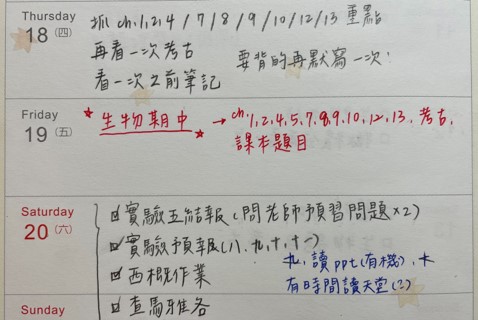 Thursday
18 (四)
抓 ch.1,2,4/7/8/9/10/12/13 重點
再看一次考古
要背的再默寫一次!
看一次之前筆記
Friday
19 (五)
*生物期中* →ch.1,2,4,5,7,8,9,10,12,13.考古.
課本題目
Saturday
20 (六)
☑實驗五結報(問老師預習問題×2)
☑實驗預報(八、九、十、十一)
☑西概作業
九、讀ppt(有機)、
有時間讀天堂(2)
☑查馬雅各
Sunday